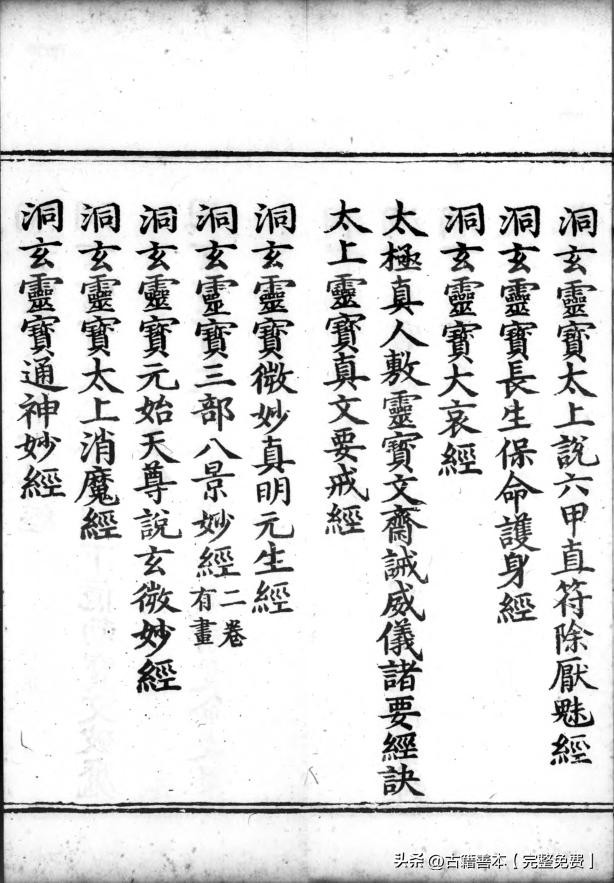 洞玄靈寶太上說六甲直符除厭魅經
洞玄靈寶長生保命護身經
洞玄靈寶大哀經
太極真人敷靈寶文齋誡威儀諸要經訣
太上靈寶真文要戒經
洞玄靈寶微妙真明元生經
洞玄靈寶三部八景妙經二卷有畫
洞玄靈寶元始天尊說玄微妙經
洞玄靈寶太上消魔經
洞玄靈寶通神妙經
头条 @古籍善本【完整免费】